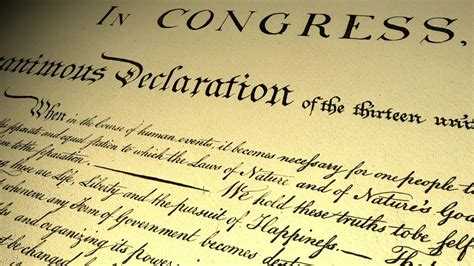 IN CONGRESS,
animous Declaration of the thirteen uni
When in the Course of human events, it becomes necessary for one people t
separate and equal station to which the Laws of Nature and of Nature's Go
to the separation. We hold these truths to be self
are Life, Liberty and the pursuit of Happiness.
whenever any Form of Government becomes destr
and organizing its powers
not be changed